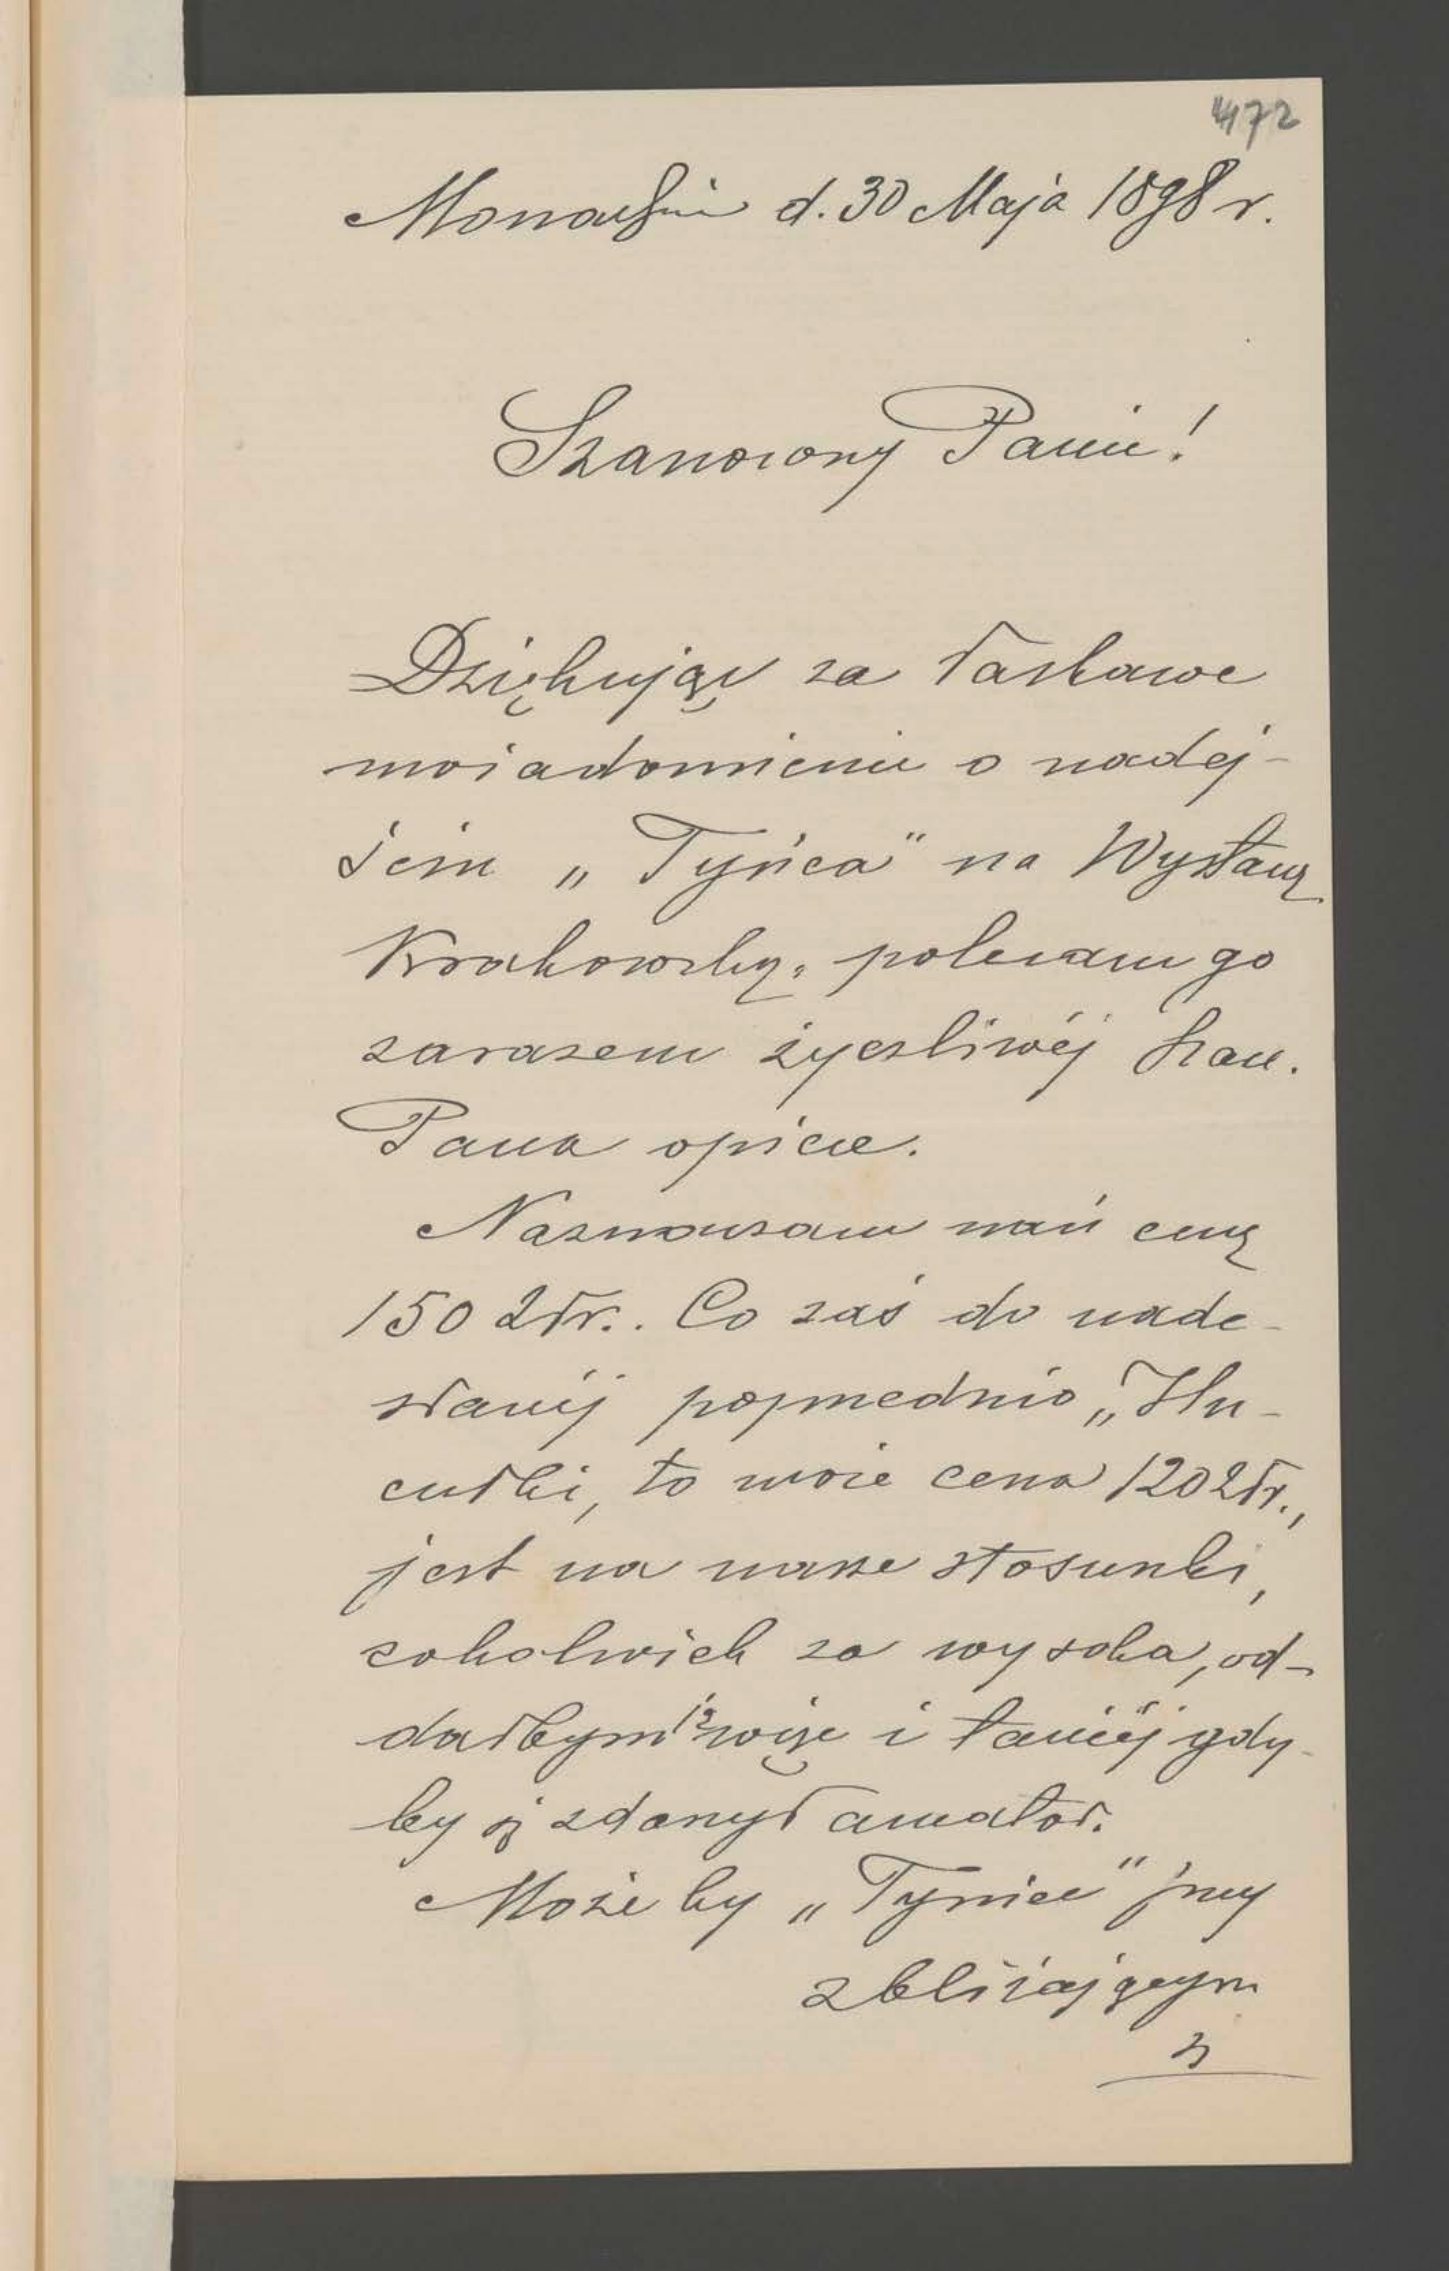 472
Monachium d. 30 Maja 1898 r.
Szanowny Panie!
Dziękując za łaskawe
uwiadomienie o nadej-
ściu „Tyńca" na Wystawę
Krakowską, polecam go
zarazem życzliwéj Szan.
Pana opiece.
Naznaczam nań cenę
150 Złr.. Co zaś do nade-
słanéj poprzednio „Hu-
cułki, to moje cena 120 Złr.,
jest na nasze stosunki,
cokolwiek za wysoka, od-
dałbym ją więc i taniéj gdy-
by się zdarzył amator.
Może by „Tyniec" przy
zbliżającym
się